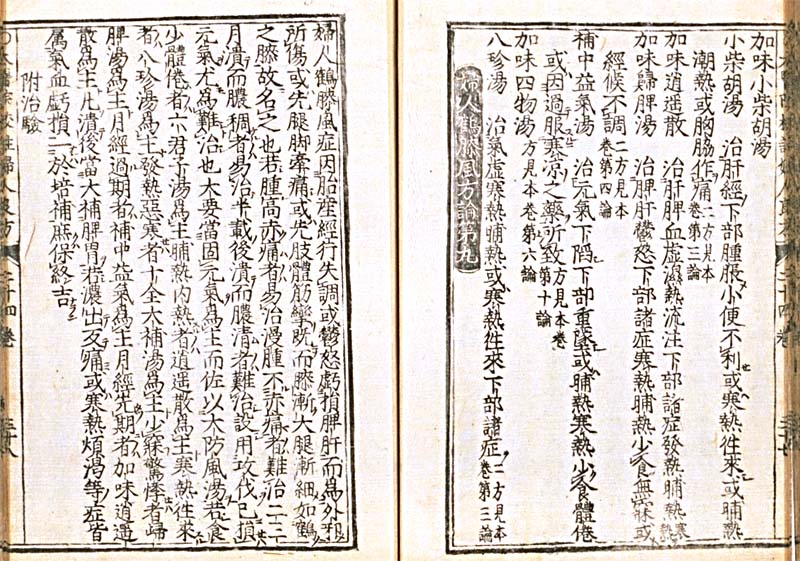 加味小柴胡湯
小柴胡湯 治肝經下部腫脹小便不利或寒熱往來或晡熱
潮熱或胸脇作痛二方見本卷第三論
加味逍遥散 治肝脾血虛濕熱流注下部諸症發熱晡熱寒熱
加味歸脾湯 治脾肝鬱怒下部諸症寒熱晡熱少食無寐或
經候不調二方見本卷第四論
補中益氣湯 治元氣下陷下部重墜或晡熱寒熱少食體倦
或因過服寒凉之藥所致方見本卷第十論
加味四物湯方見本卷第六論
八珍湯 治氣虛寒熱晡熱或寒熱往來下部諸症二方見本卷第三論
婦人鶴膝風方論第九
婦人鶴膝風症因胎産經行失調或鬱怒虧損脾肝而爲外邪
所傷或先腿脚牽痛或先肢體筋攣既而膝漸大腿漸細如鶴
之膝故名之也若腫高赤痛者易治漫腫不赤痛者難治二三
月潰而膿稠者易治半載後潰而膿清者難治設用攻伐已損
元氣尤爲難治也大要當固元氣爲主而佐以大防風湯若食
少體倦者六君子湯爲主晡熱内熱者逍遥散爲主寒熱往來
者八珍湯爲主發熱惡寒者十全大補湯爲主少寐驚悸者歸
脾湯爲主月經過期者補中益氣爲主月經先期者加味逍遥
散爲主凡潰後當大補脾胃若濃出反痛或寒熱煩渴等症皆
属氣血虧損一於培補庶保終吉
附治驗